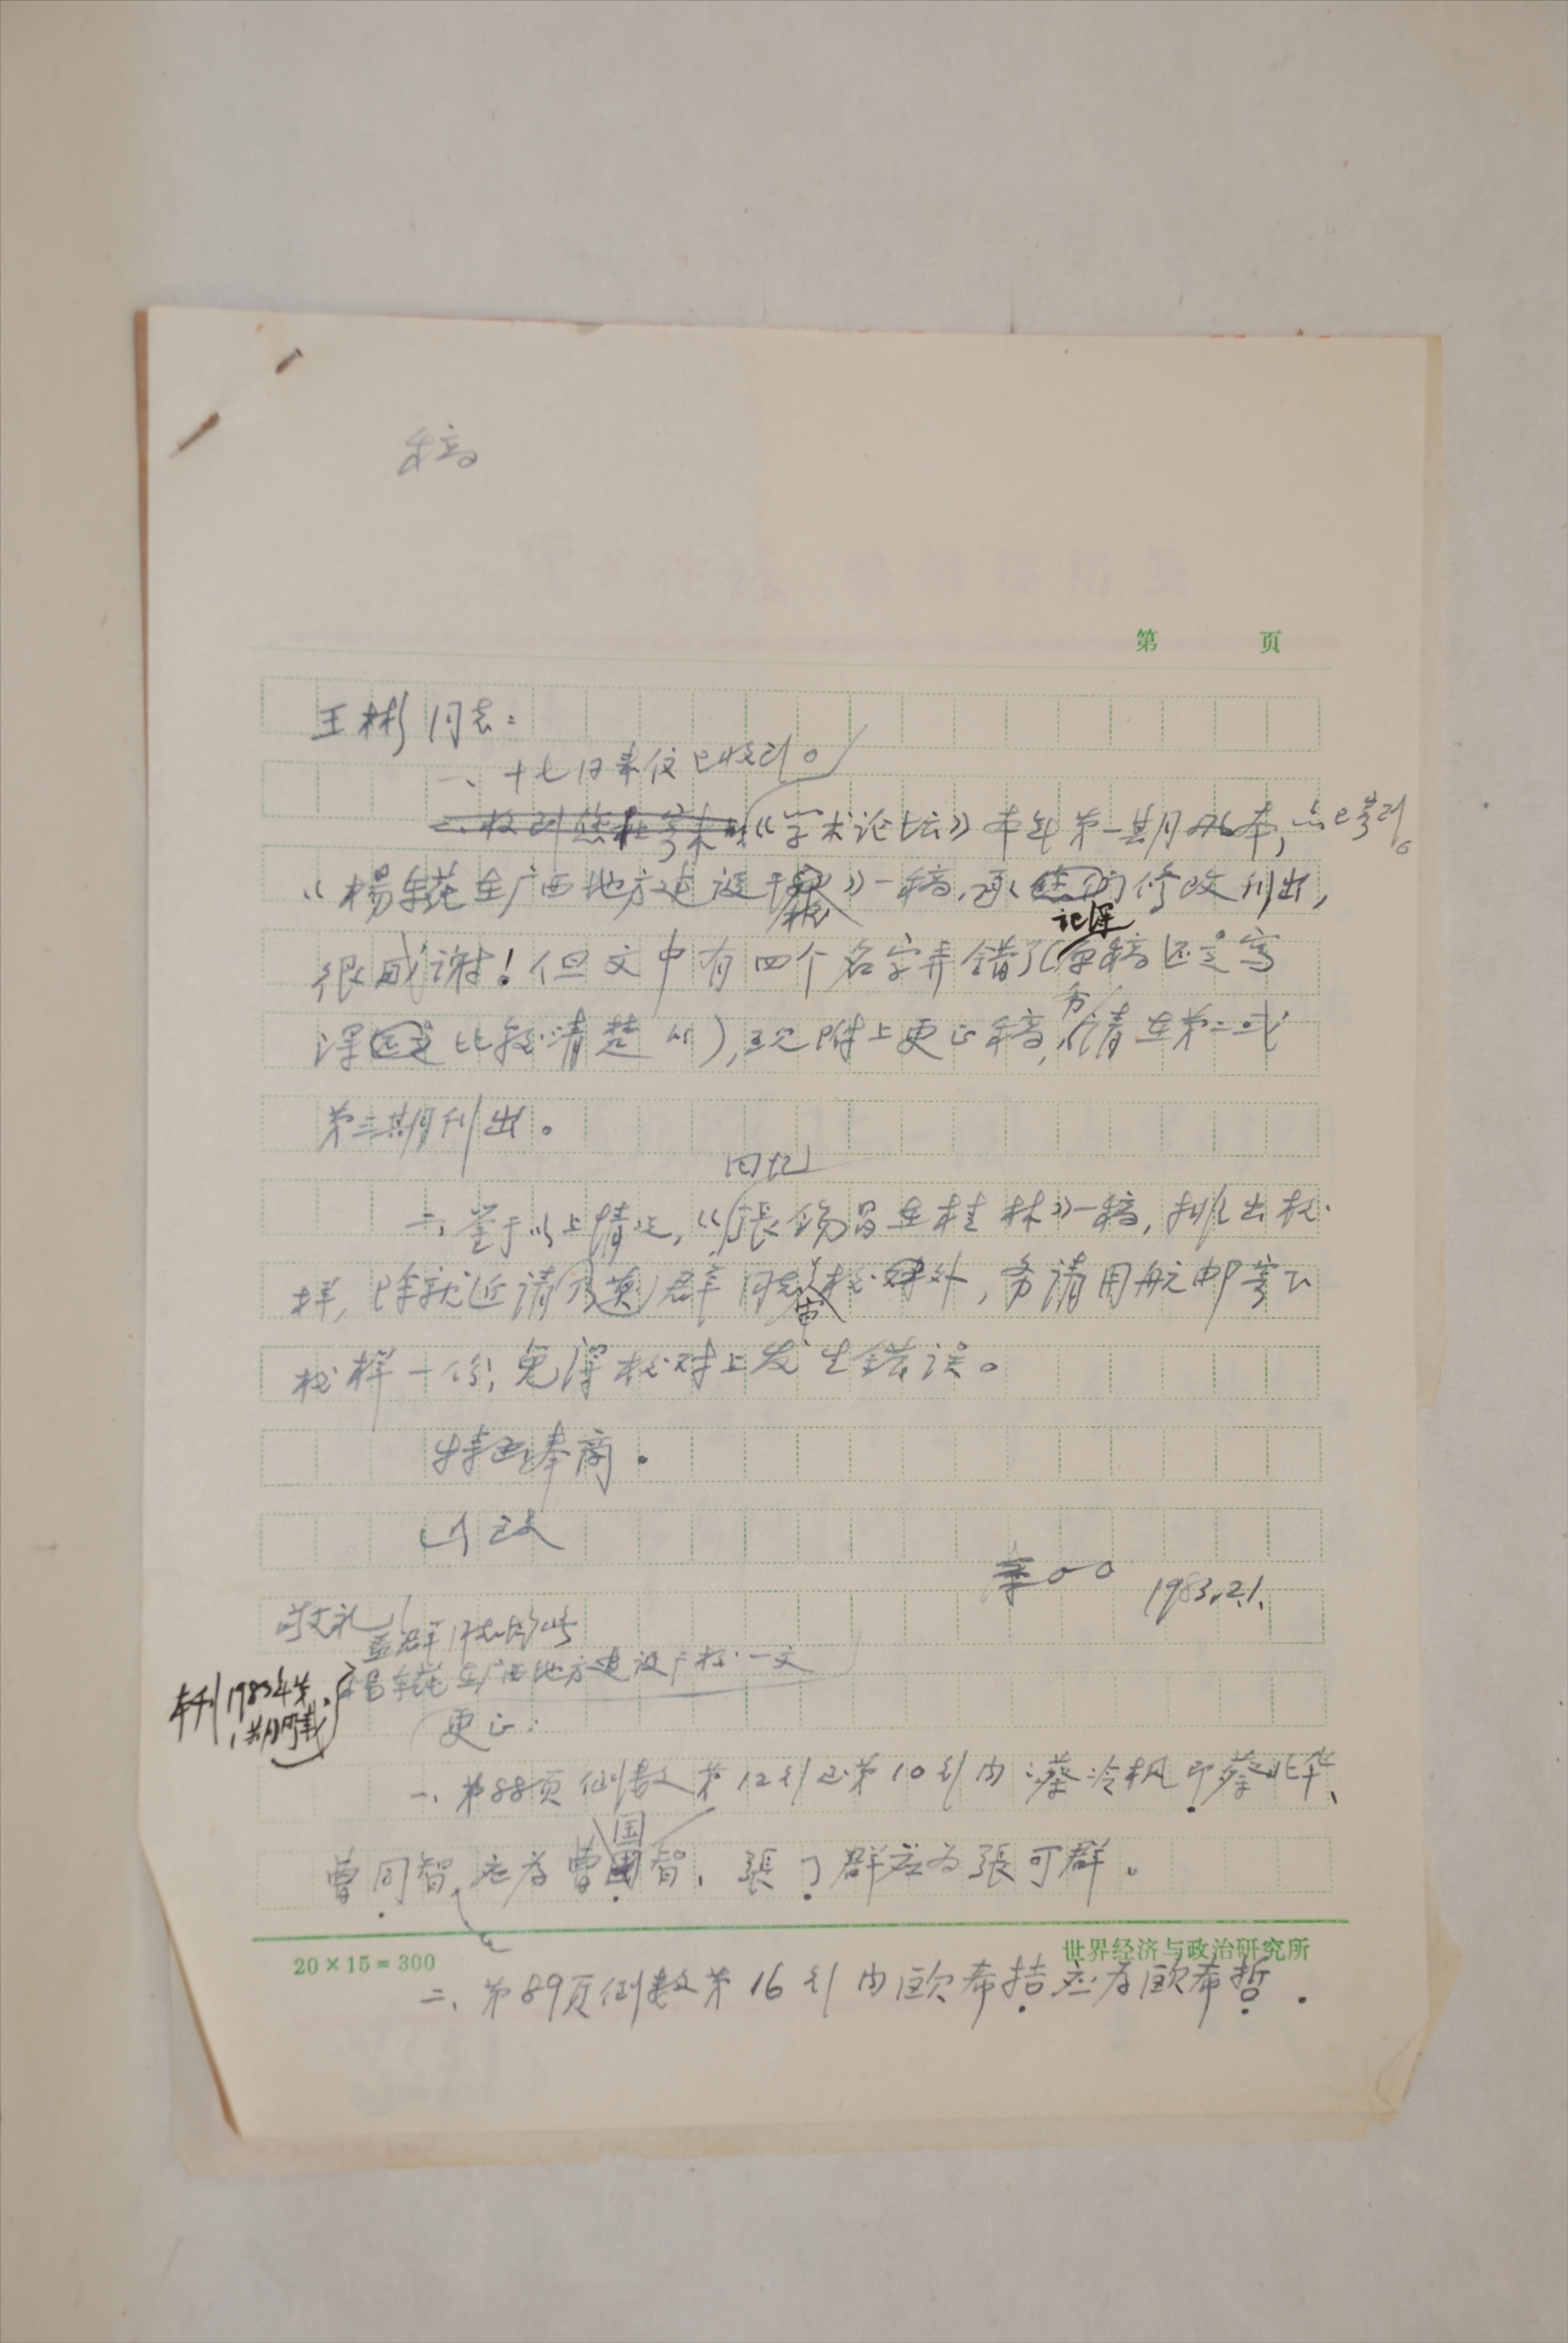 稿
第 页
王彬同志：
一、十七日来信已收到。
《学术论坛》本年第一期刊本，亦已寄到。
《楊東蒓在广西地方建设干校》一稿，承修改刊出，
很感谢！但文中有四个名字弄错了（记得原稿还是写
得比较清楚的），现附上更正稿，务请在第二或
第三期刊出。
二、鉴于以上情况，《回忆張錫昌在桂林》一稿，排出校
样，除就近请群同志审校外，务请用航邮寄下
校样一份，免得校对上发生错误。
特函奉商。
此致
李〇〇 1983.2.1.
敬礼！
本刊1983年第1期所载
楊東蒓在广西地方建设干校一文
更正：
一、第88页倒数第12行至第10行内：蔡冷枫即蔡北华、
曹同智应为曹国智、張了群应为張可群。
20×15=300 世界经济与政治研究所
二、第89页倒数第16行内欧希拮应为欧希哲.